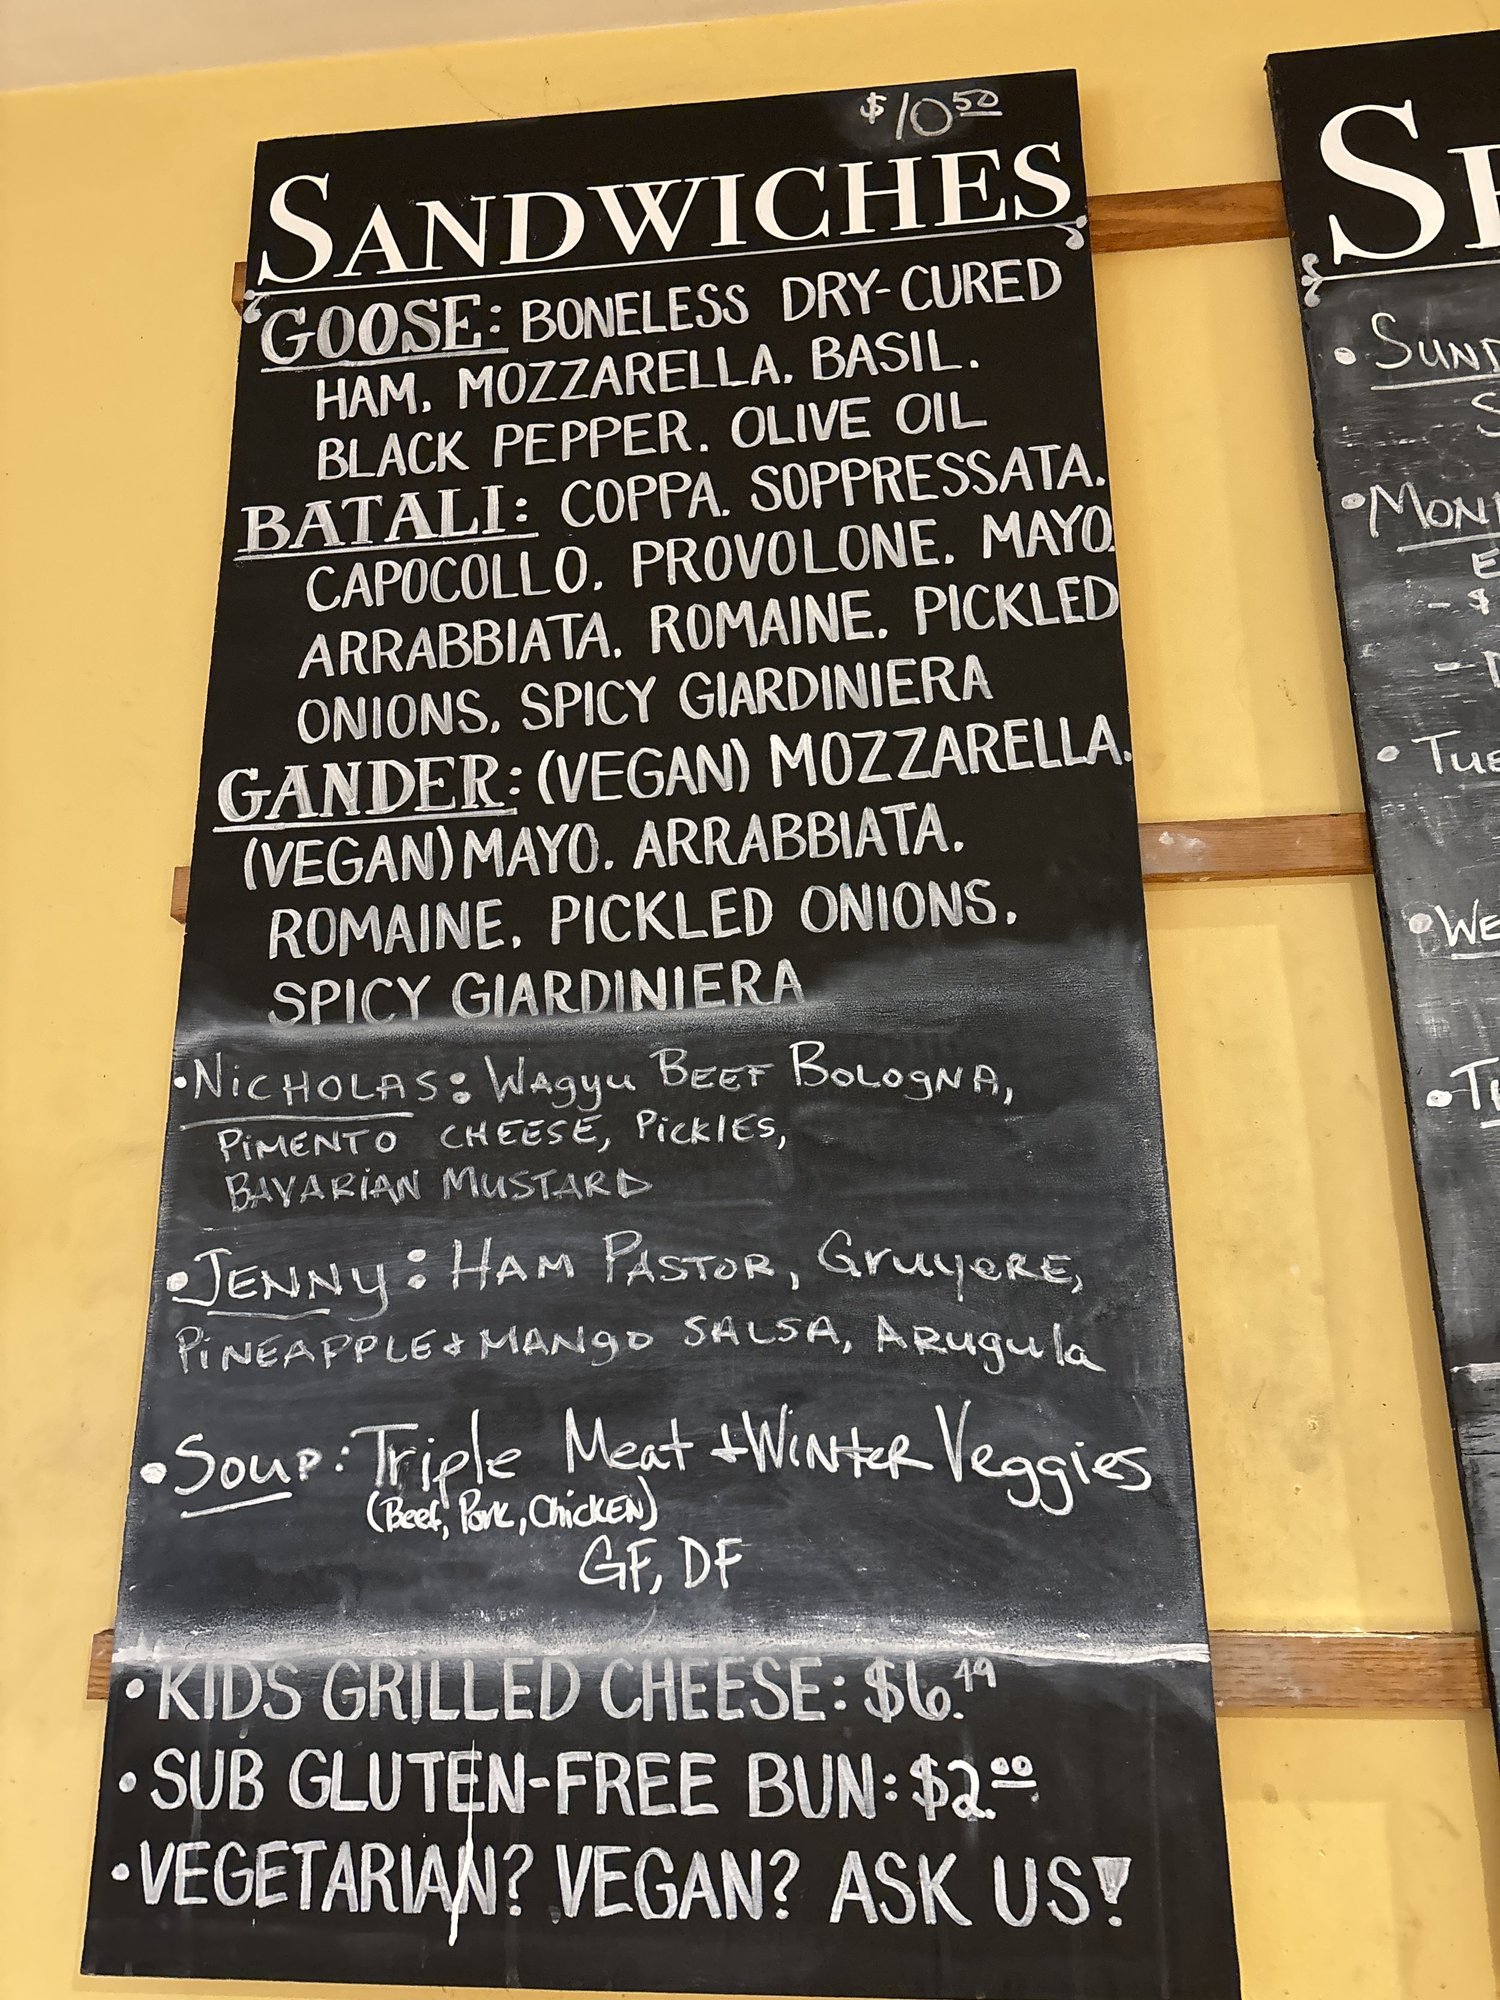 $10.50
SANDWICHES
GOOSE: BONELESS DRY-CURED
HAM, MOZZARELLA, BASIL,
BLACK PEPPER, OLIVE OIL
BATALI: COPPA, SOPPRESSATA,
CAPOCOLLO, PROVOLONE, MAYO,
ARRABBIATA, ROMAINE, PICKLED
ONIONS, SPICY GIARDINIERA
GANDER: (VEGAN) MOZZARELLA,
(VEGAN) MAYO, ARRABBIATA,
ROMAINE, PICKLED ONIONS,
SPICY GIARDINIERA
•NICHOLAS: WAgyu BEEF BOLOGNA,
PIMENTO CHEESE, PICKlES,
BAVARIAN MUSTARD
•JENNY: HAM PASTOR, GRuyERE,
PINEAPPLE + MANgO SALSA, ARugula
•Soup: Triple Meat + WINtER Veggies
(Beef, Pork, ChicKEN)
GF, DF
•KIDS GRILLED CHEESE: $6.49
•SUB GLUTEN-FREE BUN: $2.00
•VEGETARIAN? VEGAN? ASK US!
•SUND
•MON
•TUE
•WE
•T